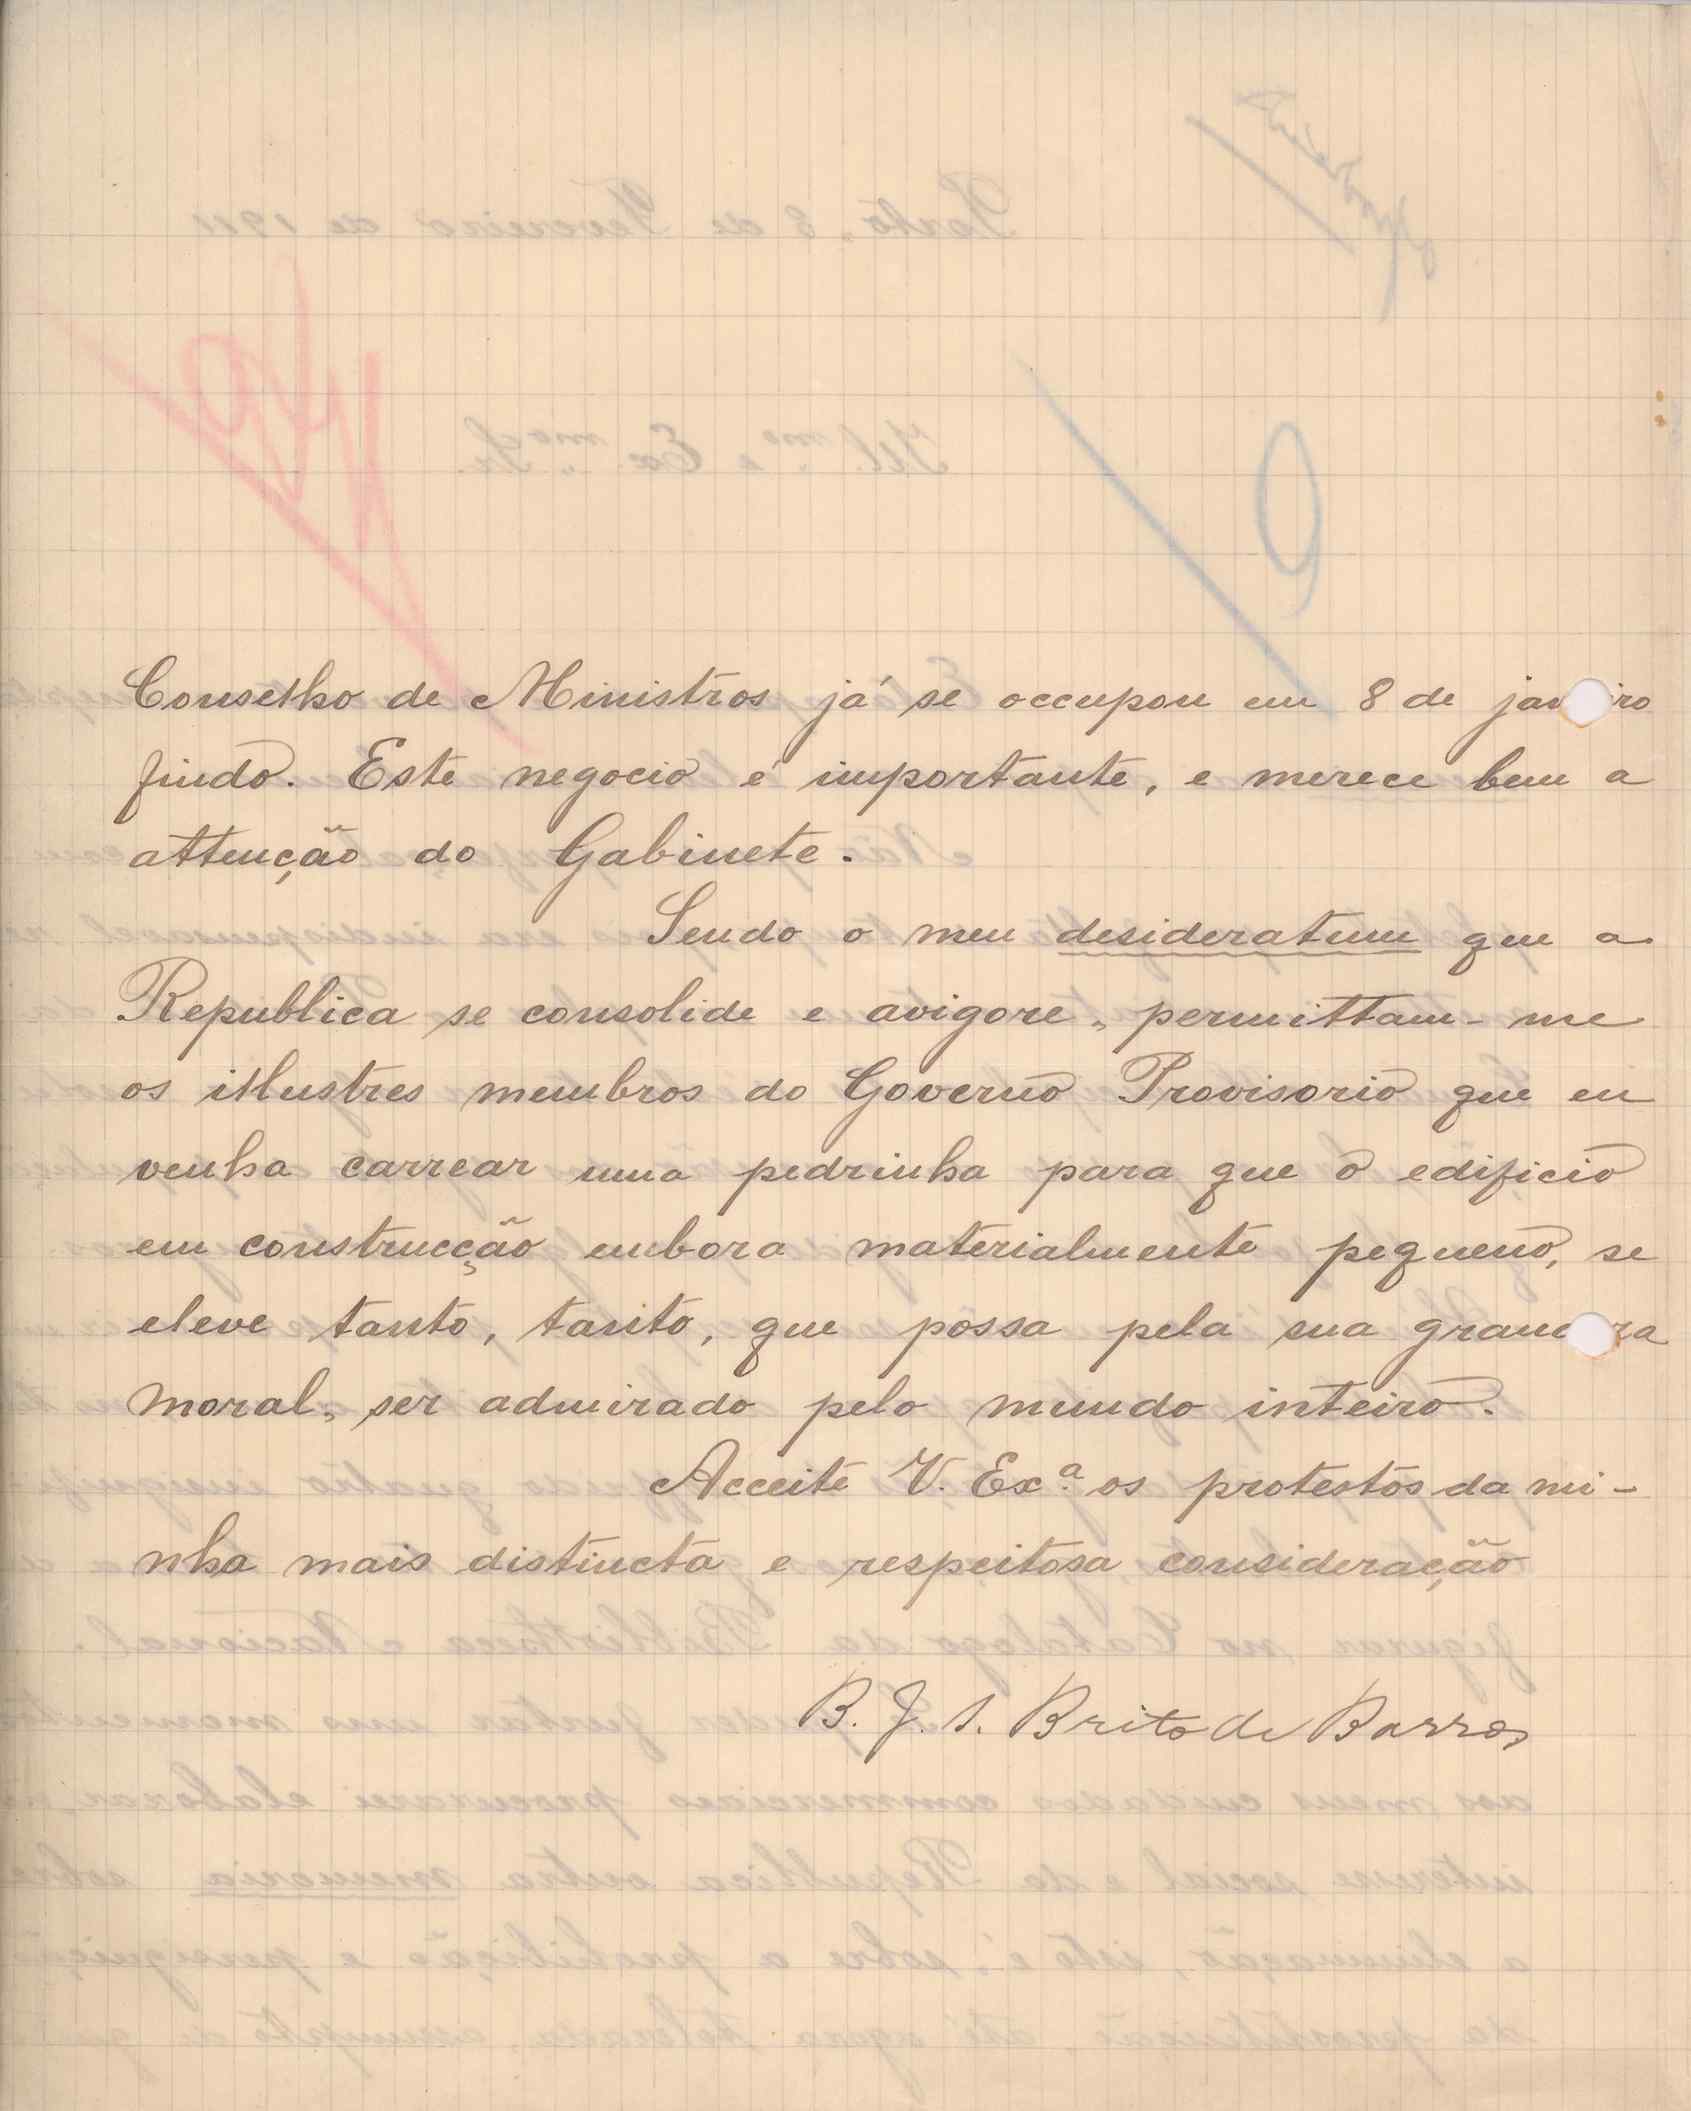 Conselho de Ministros já se occupou em 8 de janeiro
findo. Este negocio é importante, e merece bem a
attenção do Gabinete.
Sendo o meu desideratum que a
Republica se consolide e avigore, permittam-me
os illustres membros do Governo Provisorio que eu
venha carrear uma pedrinha para que o edificio
em construcção embora materialmente pequeno, se
eleve tanto, tanto, que possa pela sua grandeza
moral, ser admirado pelo mundo inteiro.
Acceite V. Ex.ª os protestos da mi-
nha mais distincta e respeitosa consideração
B. J. S. Brito de Barros